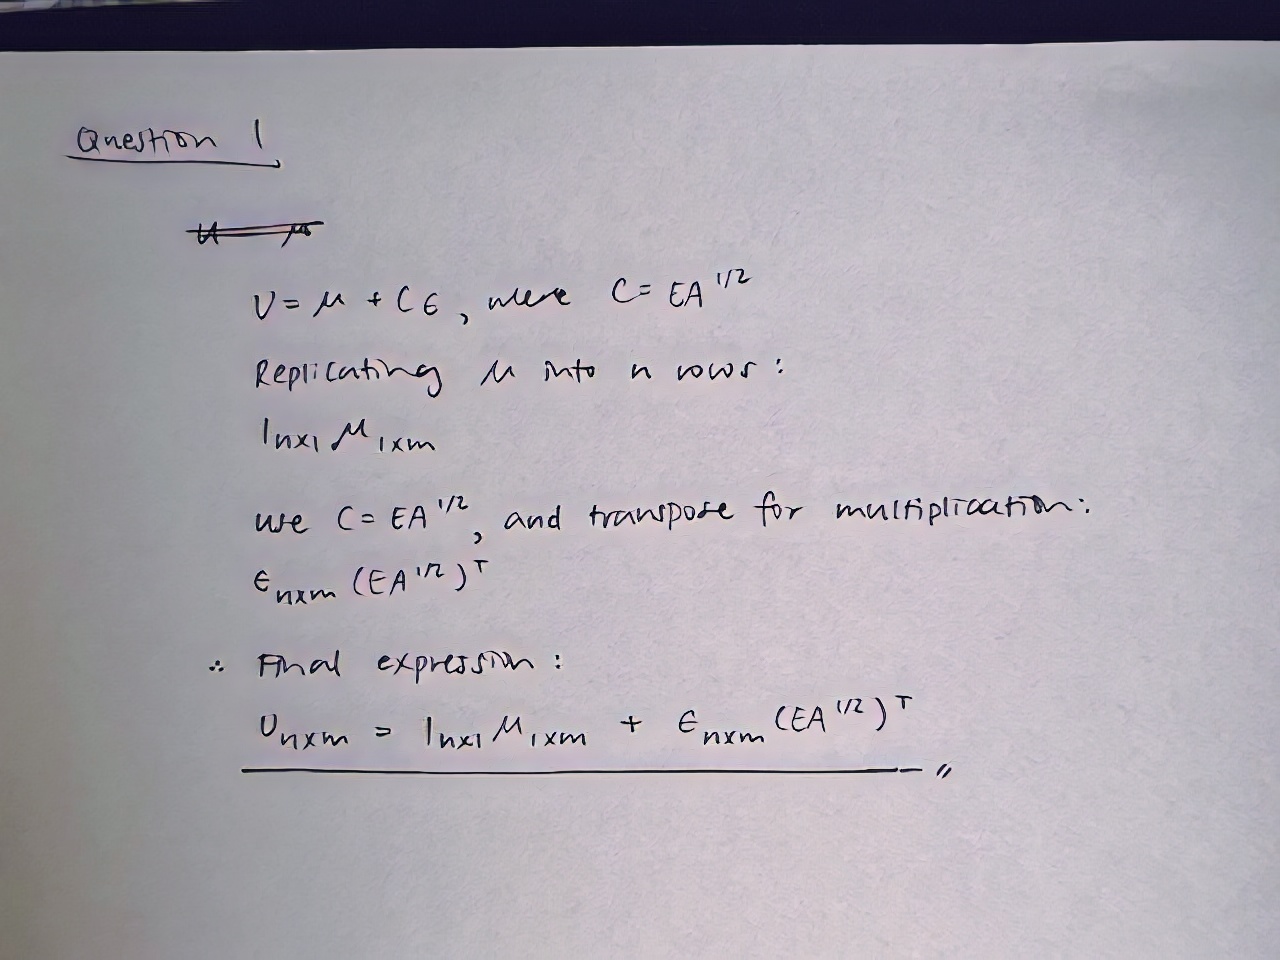 Question 1
U = μ + Cϵ, where C = EΛ^1/2
Replicating μ into n rows:
1_nx1 μ_1xm
use C = EΛ^1/2, and transpose for multiplication:
ϵ_nxm (EΛ^1/2)^T
∴ Final expression:
U_nxm = 1_nx1 μ_1xm + ϵ_nxm (EΛ^1/2)^T